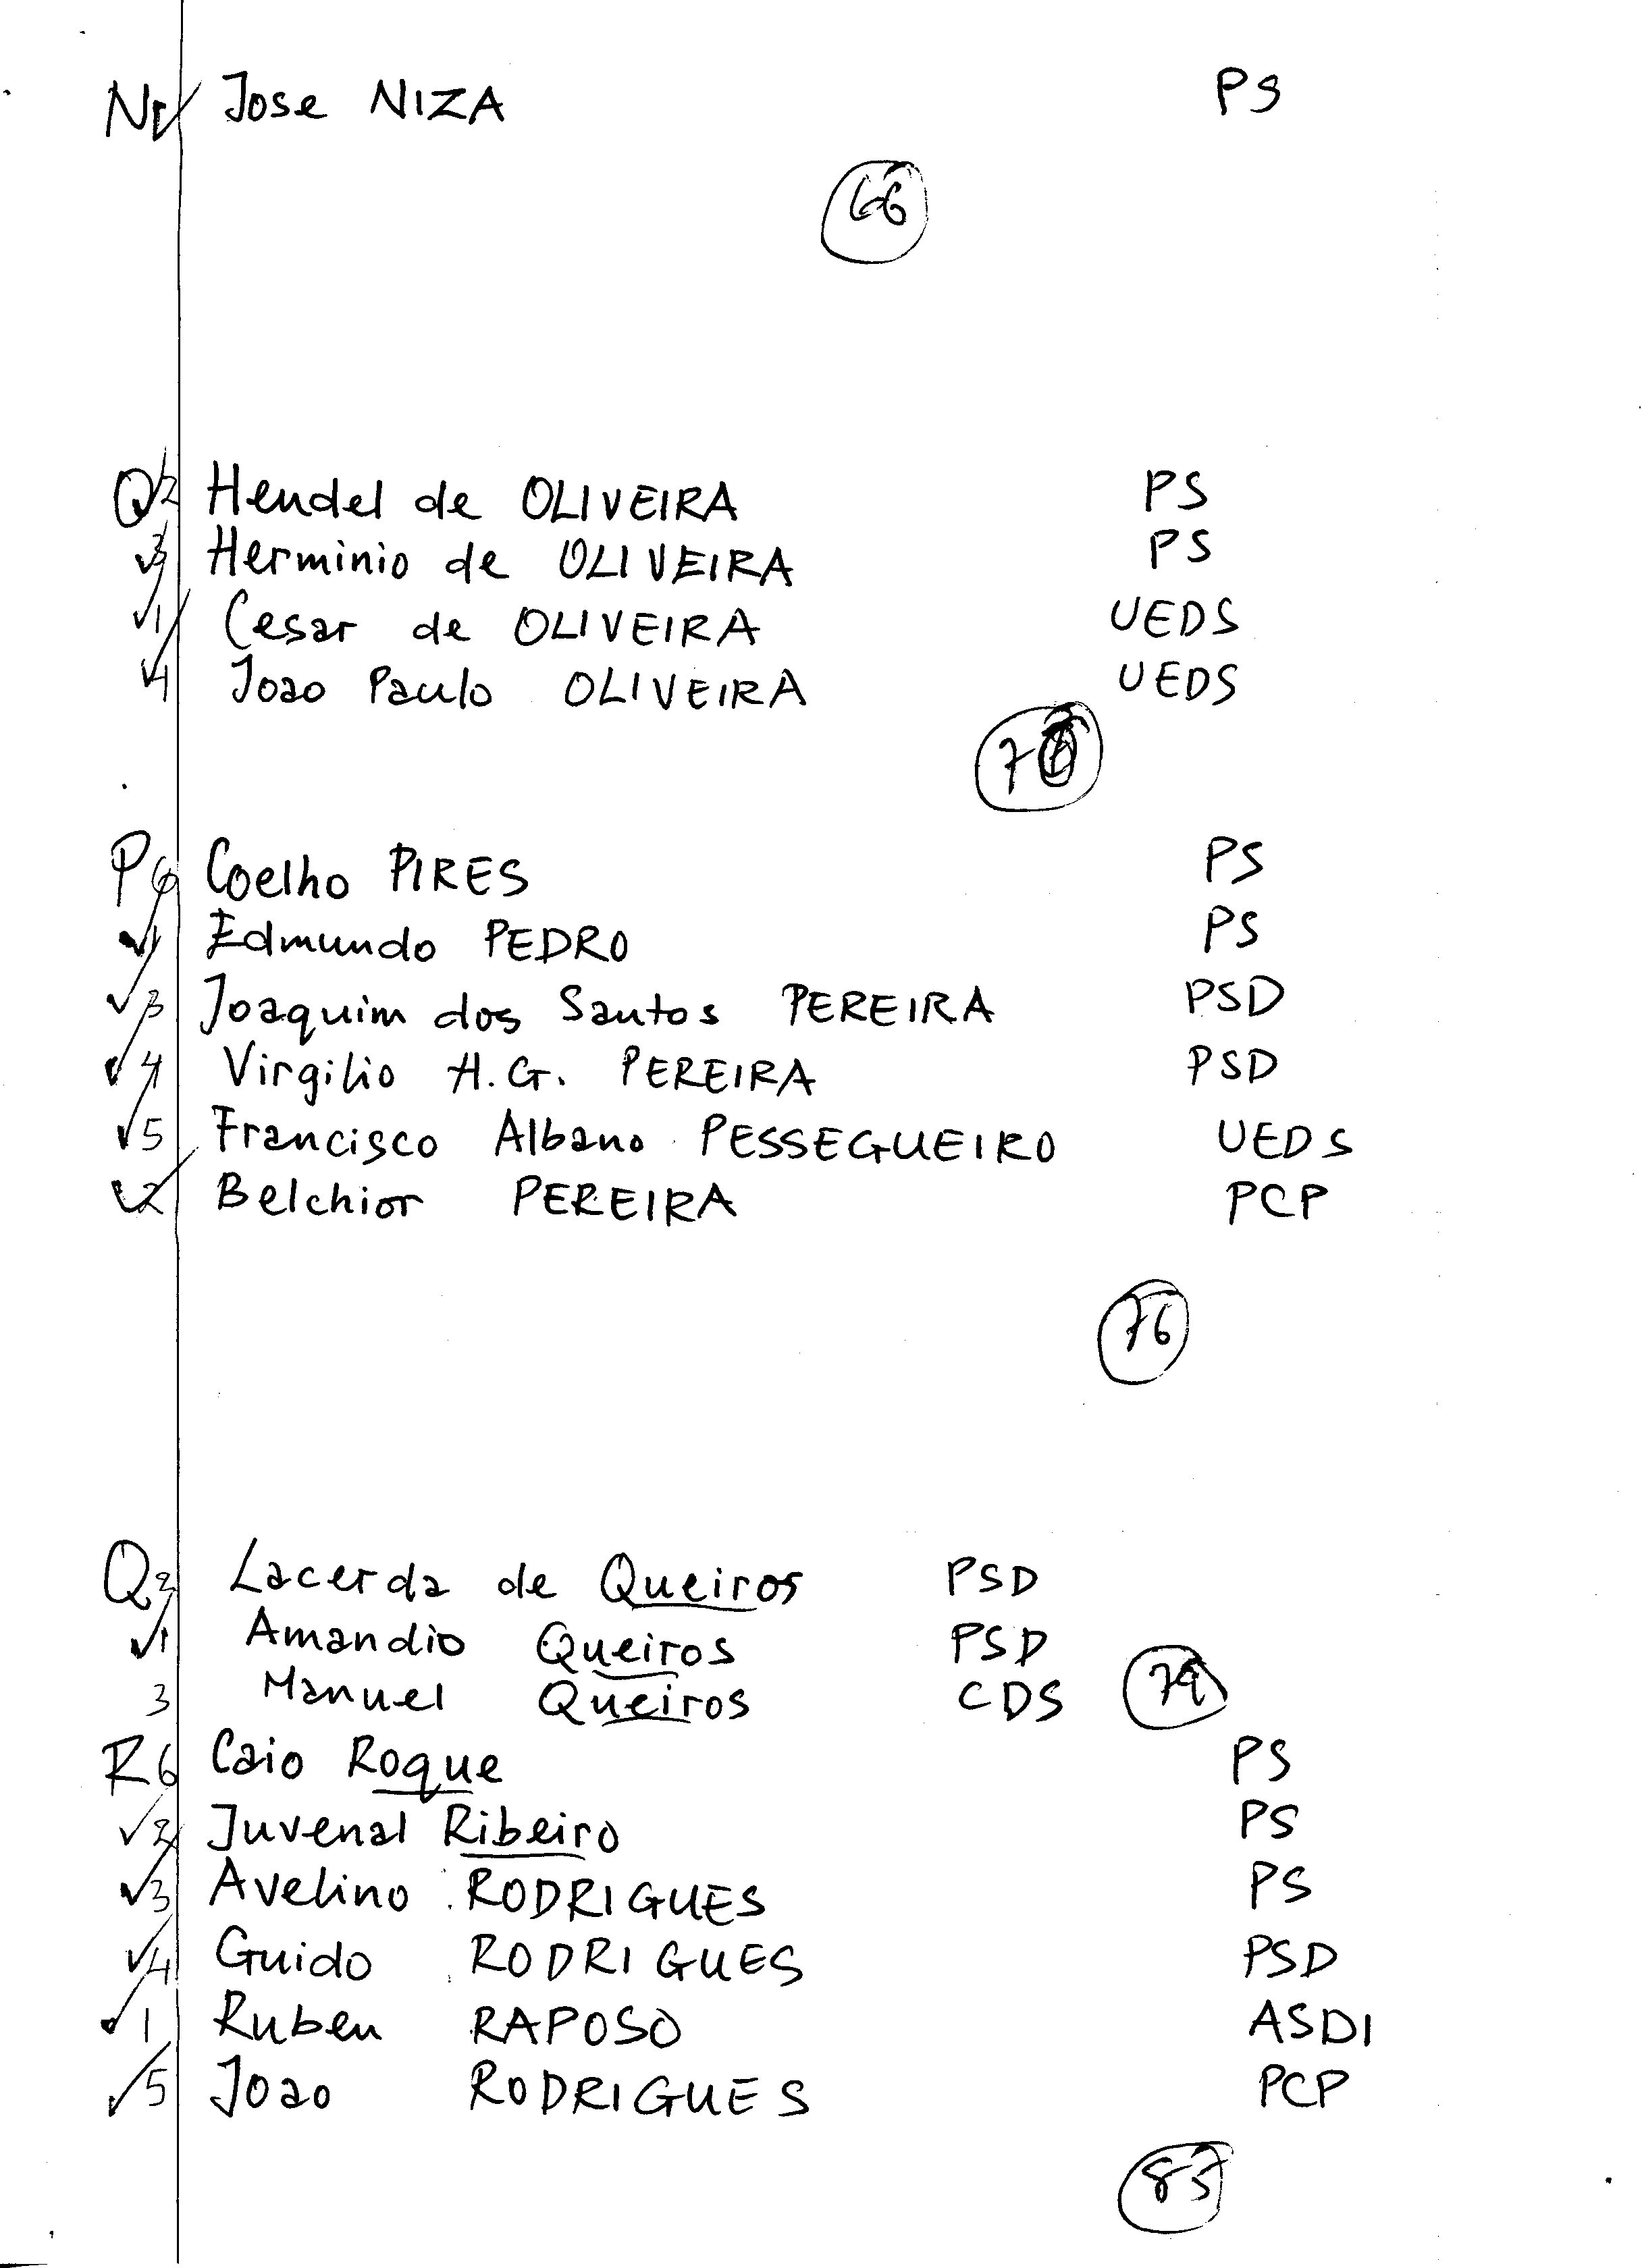 N1 Jose NIZA PS
66
O2 Hendel de OLIVEIRA PS
3 Herminio de OLIVEIRA PS
1 Cesar de OLIVEIRA UEDS
4 Joao Paulo OLIVEIRA UEDS
P6 Coelho PIRES PS
1 Edmundo PEDRO PS
3 Joaquim dos Santos PEREIRA PSD
4 Virgilio H.G. PEREIRA PSD
5 Francisco Albano PESSEGUEIRO UEDS
2 Belchior PEREIRA PCP
76
Q2 Lacerda de Queiros PSD
1 Amandio Queiros PSD
3 Manuel Queiros CDS 79
R6 Caio Roque PS
2 Juvenal Ribeiro PS
3 Avelino RODRIGUES PS
4 Guido RODRIGUES PSD
1 Ruben RAPOSO ASDI
5 Joao RODRIGUES PCP